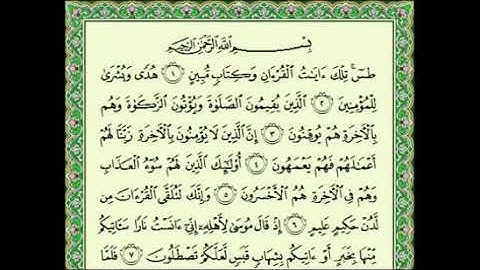 بِسْمِ ٱللَّهِ ٱلرَّحْمَٰنِ ٱلرَّحِيمِ
طسٓ ۚ تِلْكَ ءَايَٰتُ ٱلْقُرْءَانِ وَكِتَابٍ مُّبِينٍ ١ هُدًى وَبُشْرَىٰ
لِلْمُؤْمِنِينَ ٢ ٱلَّذِينَ يُقِيمُونَ ٱلصَّلَوٰةَ وَيُؤْتُونَ ٱلزَّكَوٰةَ وَهُم
بِٱلْءَاخِرَةِ هُمْ يُوقِنُونَ ٣ إِنَّ ٱلَّذِينَ لَا يُؤْمِنُونَ بِٱلْءَاخِرَةِ زَيَّنَّا لَهُمْ
أَعْمَٰلَهُمْ فَهُمْ يَعْمَهُونَ ٤ أُو۟لَٰٓئِكَ ٱلَّذِينَ لَهُمْ سُوٓءُ ٱلْعَذَابِ
وَهُمْ فِى ٱلْءَاخِرَةِ هُمُ ٱلْأَخْسَرُونَ ٥ وَإِنَّكَ لَتُلَقَّى ٱلْقُرْءَانَ مِن
لَّدُنْ حَكِيمٍ عَلِيمٍ ٦ إِذْ قَالَ مُوسَىٰ لِأَهْلِهِۦٓ إِنِّىٓ ءَانَسْتُ نَارًا سَـَٔاتِيكُم
مِّنْهَا بِخَبَرٍ أَوْ ءَاتِيكُم بِشِهَابٍ قَبَسٍ لَّعَلَّكُمْ تَصْطَلُونَ ٧ فَلَمَّا